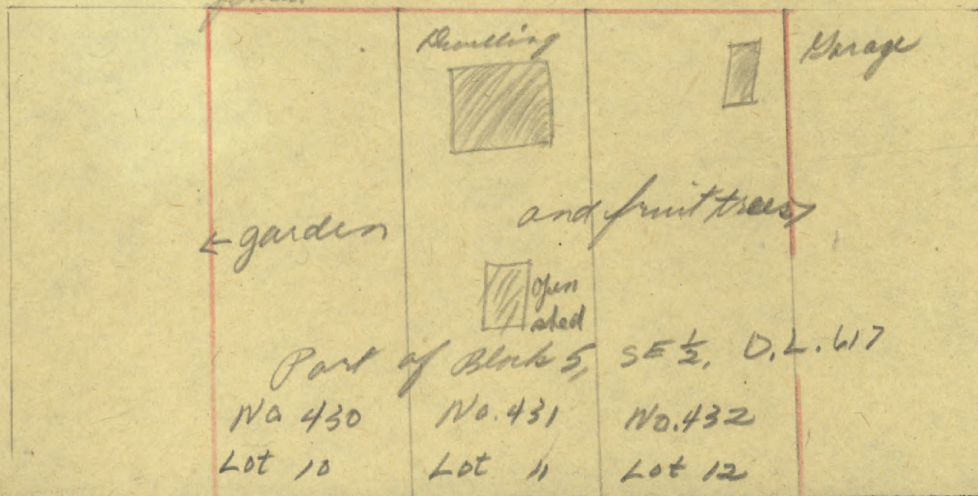 Dwelling
Garage
garden and fruit trees
Open
shed
Part of Block 5, SE ½, D.L. 617
No 430 No. 431 No. 432
Lot 10 Lot 11 Lot 12